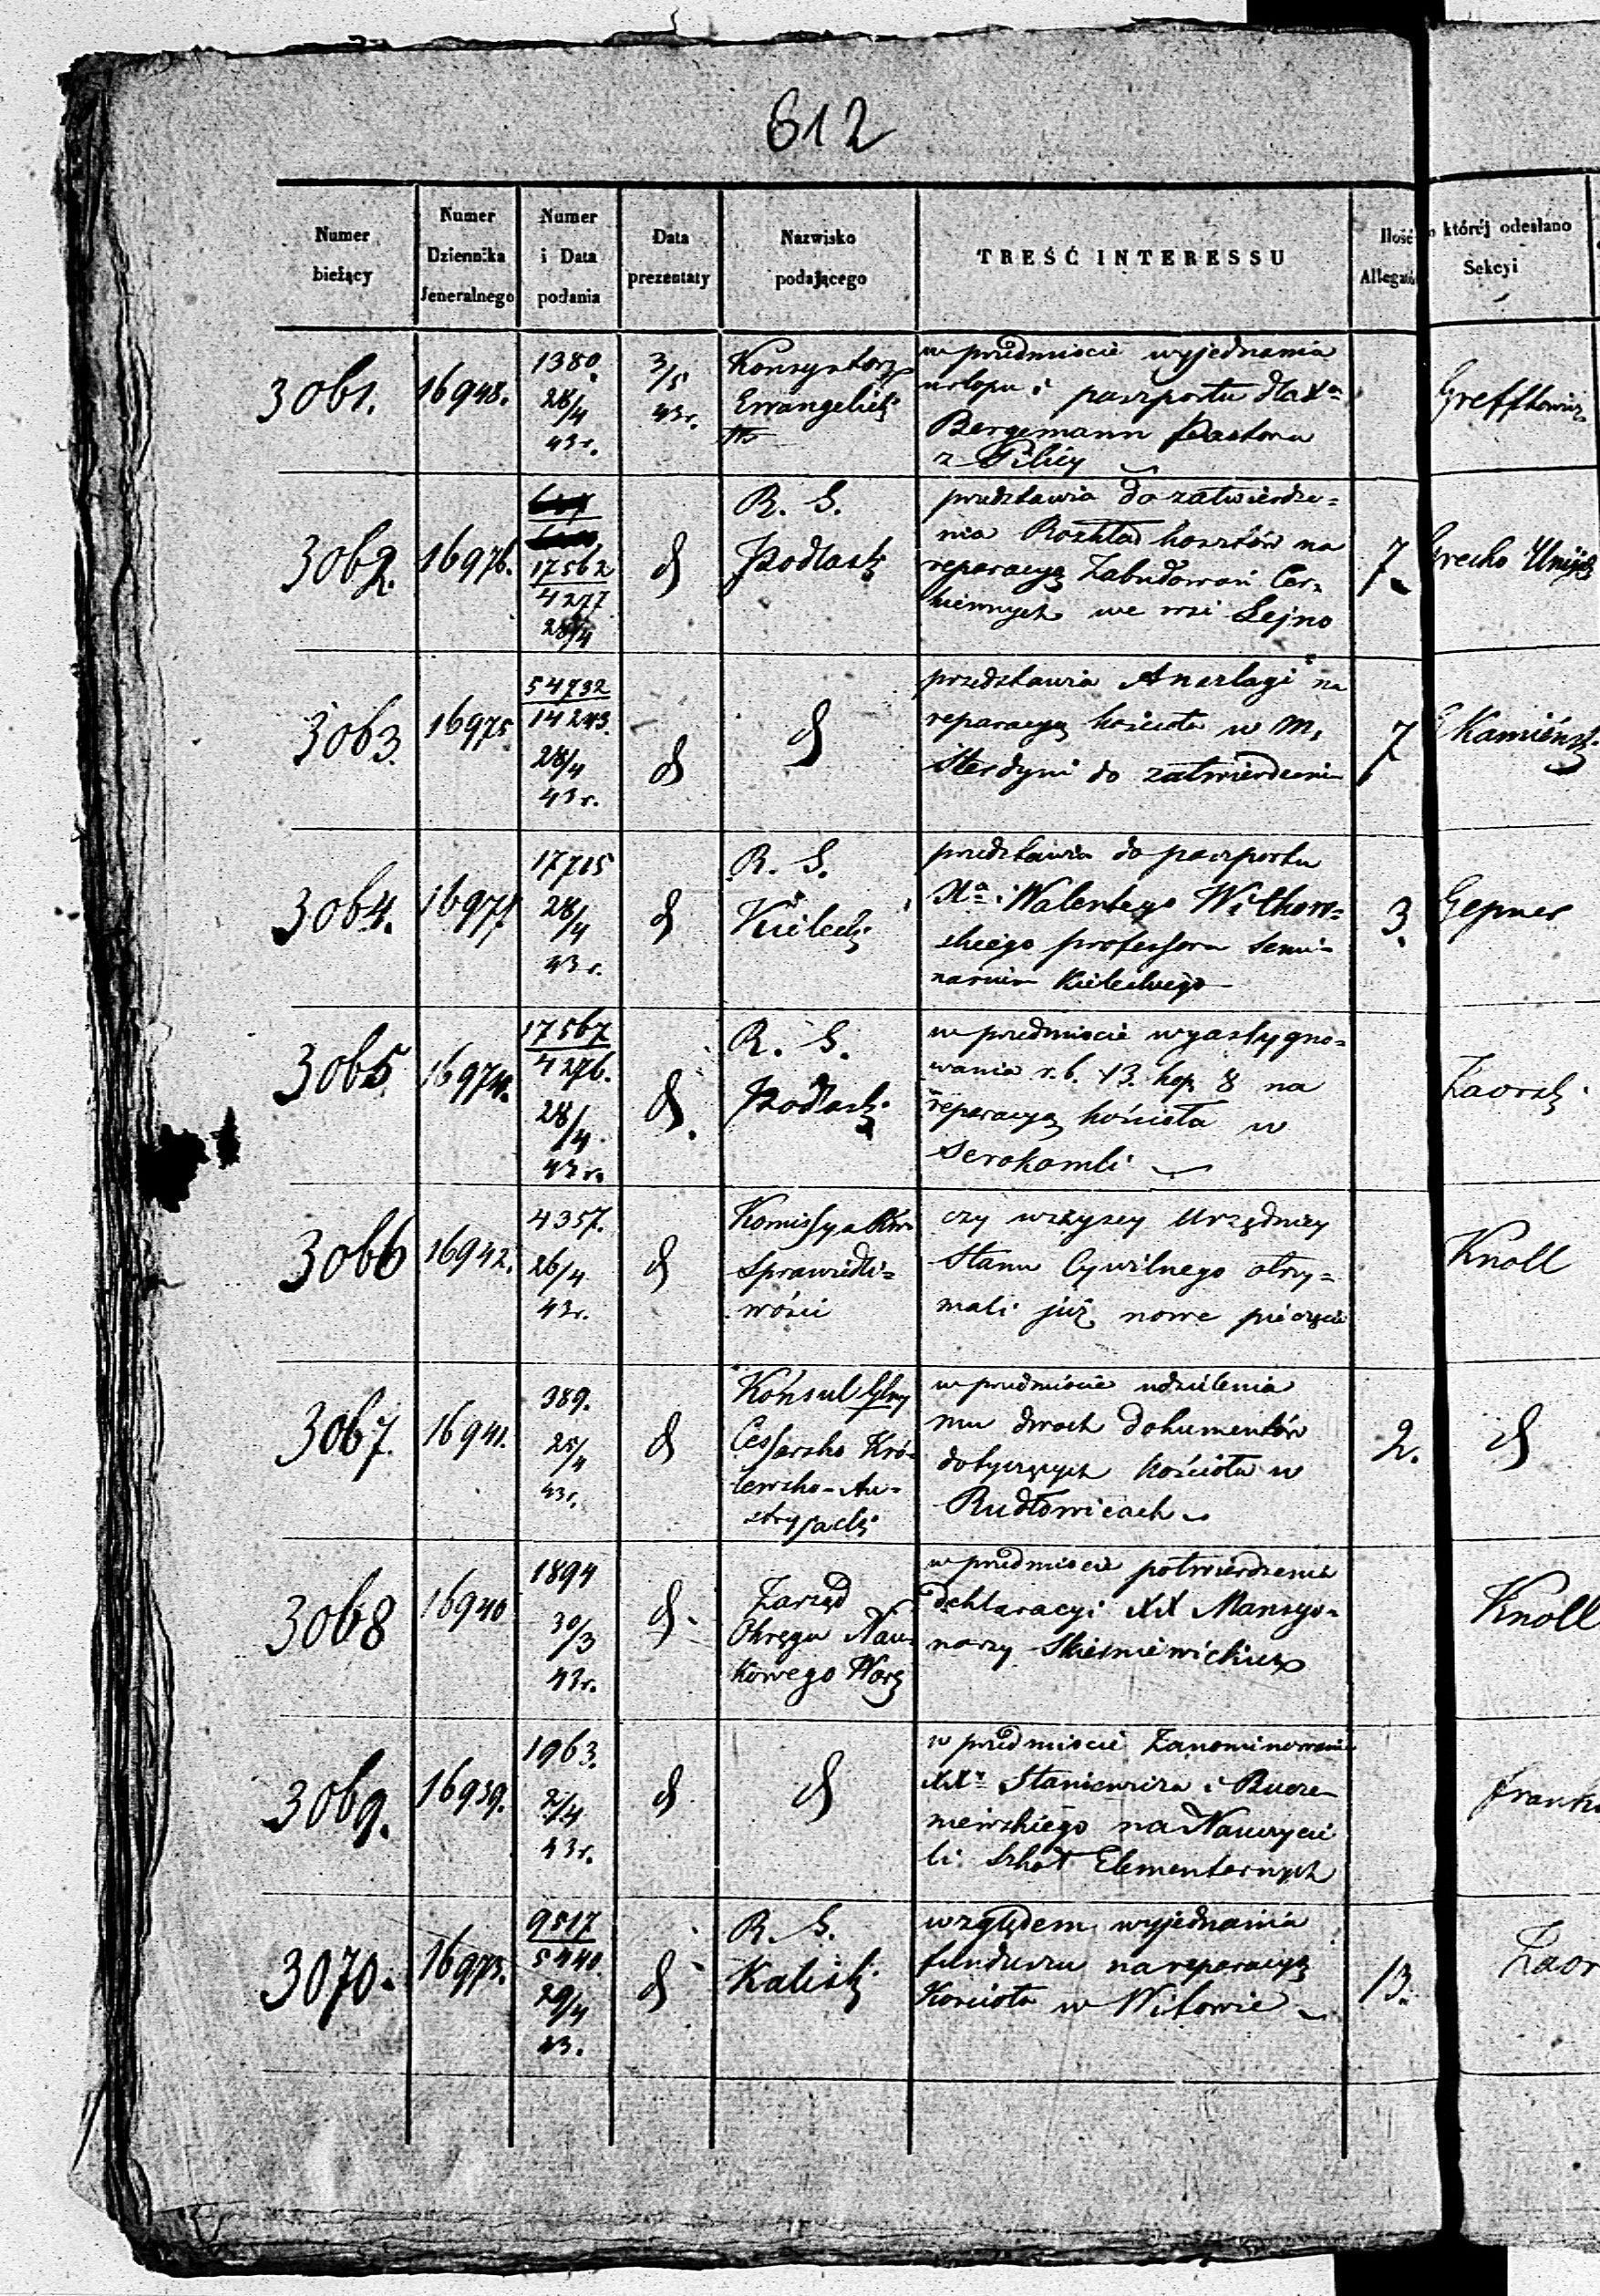 612
Numer bieżący
Numer Dziennika Jeneralnego
Numer i Data podania
Data prezentaty
Nazwisko podającego
TREŚĆ INTERESSU
Ilość Allegató
którėj odesłano Sekcyi
3061. 16948. 1380. 28/4 43r. 3/5 43r.
Konsystorz
Ewangelicki
w przedmiocie wyjednania
urlopu i paszportu dla Xa
Bergemann Pastora
z Pilicy
3062. 16976. 17562 4277 28/4
R. G.
Podlaski
przedstawia do zatwierdze=
nia Rozkład kosztów na
reparacyą Zabudowań Cer=
kiewnych we wsi Sejno
7. Grecko Unijni
3063. 16975 54732 14243. 28/4 43r.
przedstawia Anszlagi na
reparacyą kościoła w M.
Sterdyni do zatwierdzenia
7 Kamiński
3064. 16977 17715 28/4 43r.
R. G.
Kielecki
przedstawia do paszportu
Xa Walentego Witkow=
skiego professora Semi=
narium Kieleckiego
3. Gepner
3065 16974. 17567 4276. 28/4 43r.
R. G.
Podlaski
w przedmiocie wyassygno=
wania r.s. 13. kop. 8 na
reparacyą kościoła w
Serokomli
Zaorski
3066 16942. 4357. 26/4 43r.
Komissya Rów
Sprawiedli=
wości
czy wszyscy Urzędnicy
Stanu Cywilnego otrzy=
mali już nowe pieczęcie
Knoll
3067. 16941. 389. 25/4 43r.
Konsul Jlny
Cessarsko Kró=
lewsko-Au=
stryjacki
w przedmiocie udzielenia
mu dwóch dokumentów
dotyczących kościoła w
Rudłowicach
2.
3068 16940 1894 30/3 43r.
Zarząd
Okręgu Nau=
kowego Wars
w przedmiocie potwierdzenia
deklaracyi XX Mansyo=
narzy Skierniewickich
Knoll
3069. 16939. 1963. 2/4 43r.
w przedmiocie Zanominowania
XXy Staniewicza i Rusze=
niewskiego na Nauczycie
li Szkół Elementarnych
3070. 16973. 9517 5440. 29/4 43.
R. G.
Kaliski
względem wyjednania
funduszu na reparacyą
Kościoła w Witowie
13. Zaor